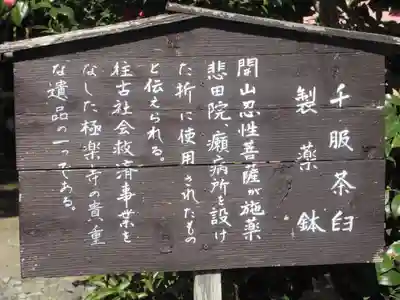 千服茶臼
製薬鉢
開山忍性菩薩が施薬
悲田院、癩病所を設け
た折に使用されたもの
と伝えられる。
往古社会救済事業を
なした極楽寺の貴重
な遺品の一つである。